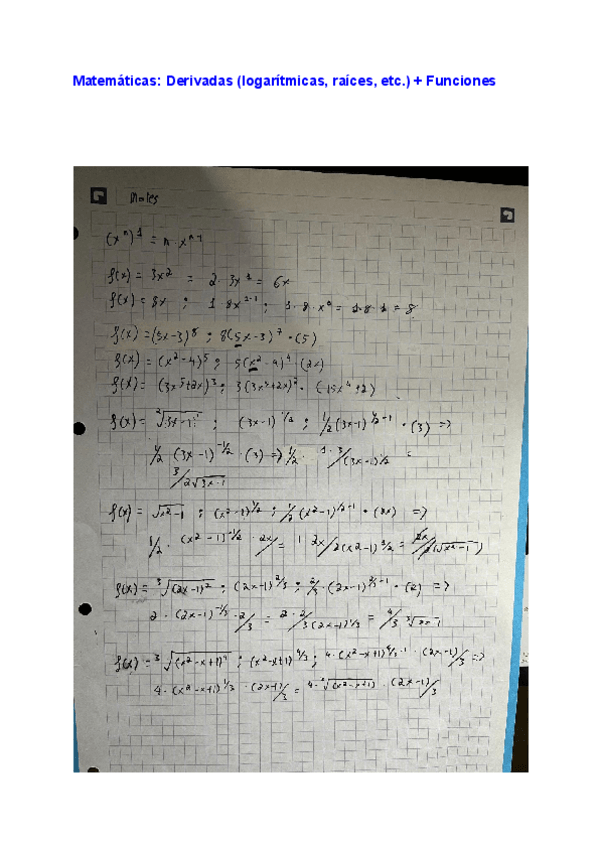 Matemáticas: Derivadas (logarítmicas, raíces, etc.) + Funciones
(xⁿ)¹ = n · xⁿ⁻¹
f(x) = 3x² = 2 · 3x¹ = 6x
f(x) = 8x ; 1 · 8x¹⁻¹ ; 1 · 8 · x⁰ = 1 · 8 · 1 = 8
f(x) = (5x-3)⁸ ; 8(5x-3)⁷ · (5)
f(x) = (x²-4)⁵ ; 5(x²-4)⁴ · (2x)
f(x) = (3x⁵+2x)³ ; 3(3x⁵+2x)² · (15x⁴+2)
f(x) = ²√(3x-1)¹ ; (3x-1)^1/2 ; 1/2 (3x-1)^1/2-1 · (3) =>
1/2 (3x-1)^-1/2 · (3) => 1/2 · 3/(3x-1)^1/2 =
3/2√3x-1
f(x) = √x²-1 ; (x²-1)^1/2 ; 1/2 (x²-1)^1/2-1 · (2x) =>
1/2 · (x²-1)^-1/2 · 2x/ = 2x/2(x²-1) = 2x/2(√x²-1)
f(x) = ³√(2x-1)² ; (2x-1)^2/3 ; 2/3 · (2x-1)^2/3-1 · (2) =>
2 · (2x-1)^-1/3 · 2/3 = 2·2/3(2x-1)^1/3 = 4/3 ³√
f(x) = ³√(x²-x+1)⁴ ; (x²-x+1)^4/3 ; 4 · (x²-x+1)^4/3-1 · (2x-1)/3 =>
4 · (x²-x+1)^1/3 · (2x-1)/3 = 4 · ³√(x²-x+1) · (2x-1)/3